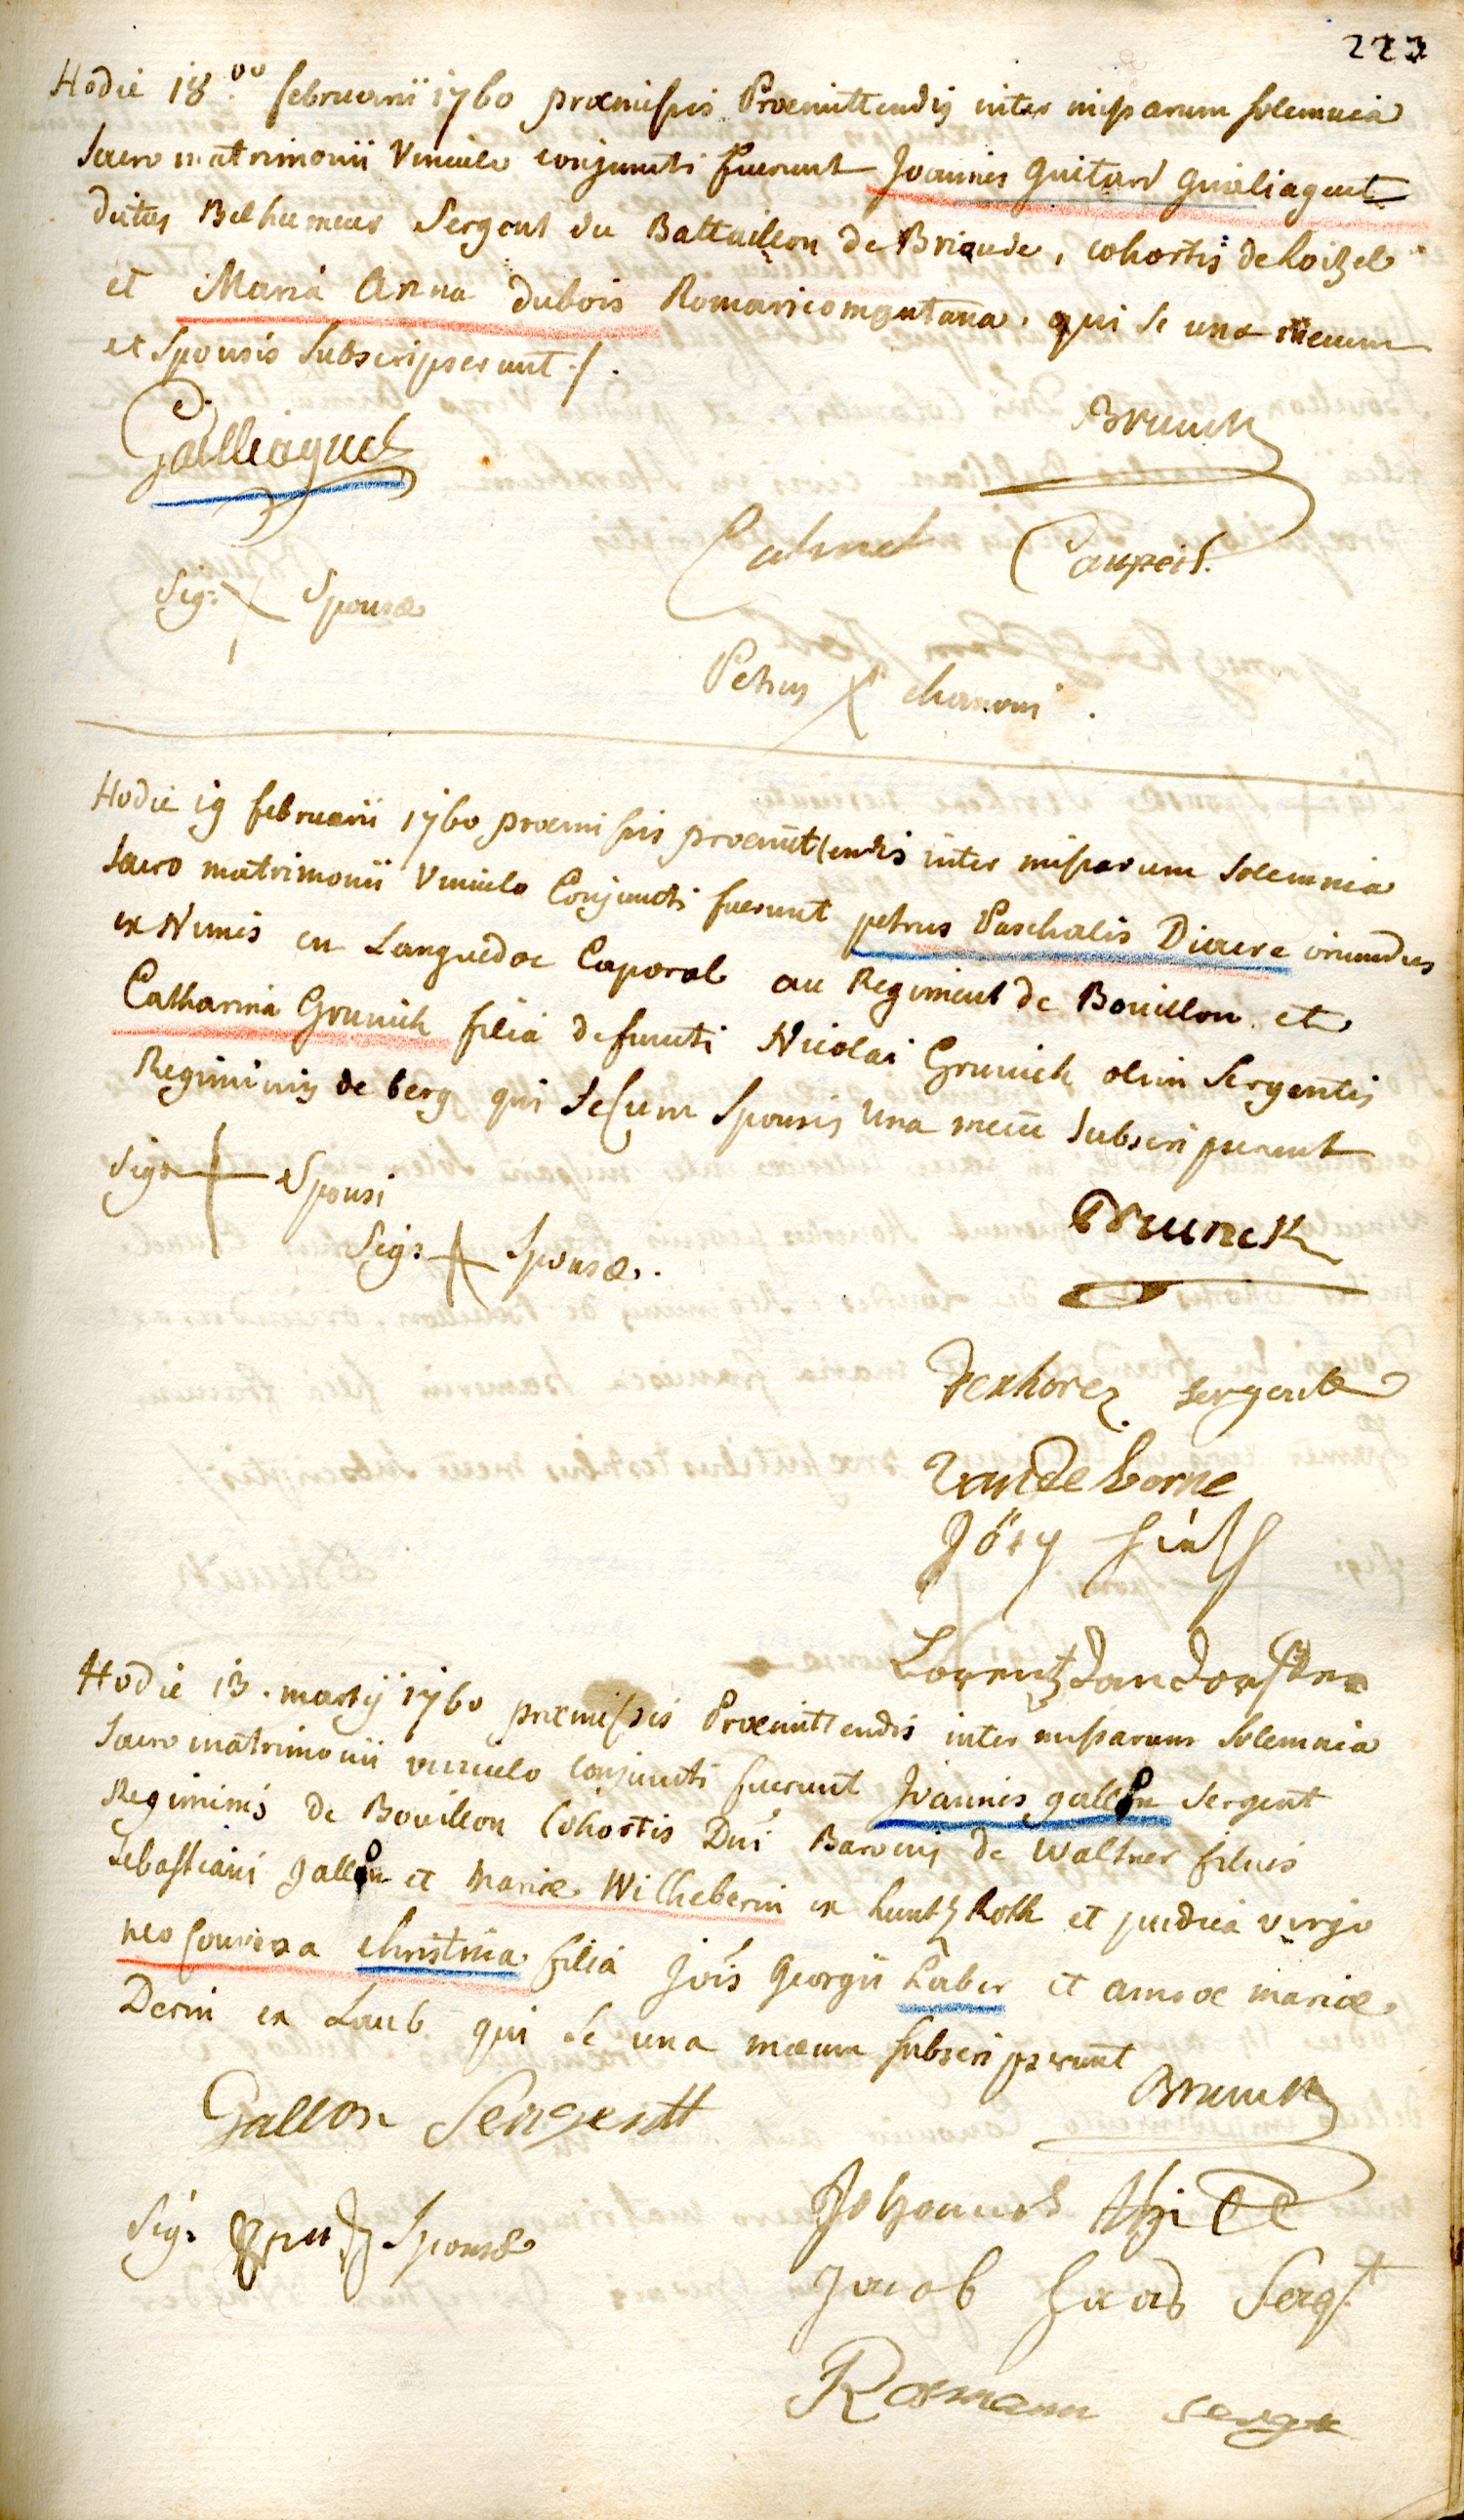 223
Hodie 18.vo februarii 1760 præmissis Præmittendis inter missarum solemnia
sacro matrimonii Vinculo conjuncti fuerunt Joannes Guitard
dictus Belhumeur Sergent du Battaillon de Brioude, cohortis de
et Maria Anna dubois Romaricomontana. qui se una mecum
et Spousis Subscripserunt ./.
Galliaguet
Brunck
Calmet Caupeil.
Sig: X Sponsæ
Petrus X chanoni .
Hodie 19 februarii 1760 præmissis præmittendis inter missarum Solemnia
sacro matrimonii Vinculo Conjuncti fuerunt petrus Paschalis oriundus
ex Nimis en Languedoc Caporal au Regiment de Bouillon et
Catharina Grunich filia defuncti Nicolai Grunich olim Sergentis
Regiminis de berg qui se cum Sponsis Una mecu Subscripserunt
Sig: + Sponsi
Sig: + Sponsæ.
Brunck
sergente
Vandeborne
Jörg
Lorentz
Hodie 13. martij 1760 præmissis Præmittendis inter missarum Solemnia
Sacro matrimonii vinculo conjuncti fuerunt Joannes gallon Sergent
Regiminis de Bouillon Cohortis Dni Baronis de Waltner filius
Sebastiani gallon et Mariæ Wilheberin ex et pudica virgo
neo Conversa Christina filia Jois Georgii Laber et annæ mariæ
Derin ex Laub qui se una mecum subscripserunt
Gallon Sergentt
Brunck
Sig: Sponsæ
Johannes
Jacob Haas Serg.t
Rosmann serge